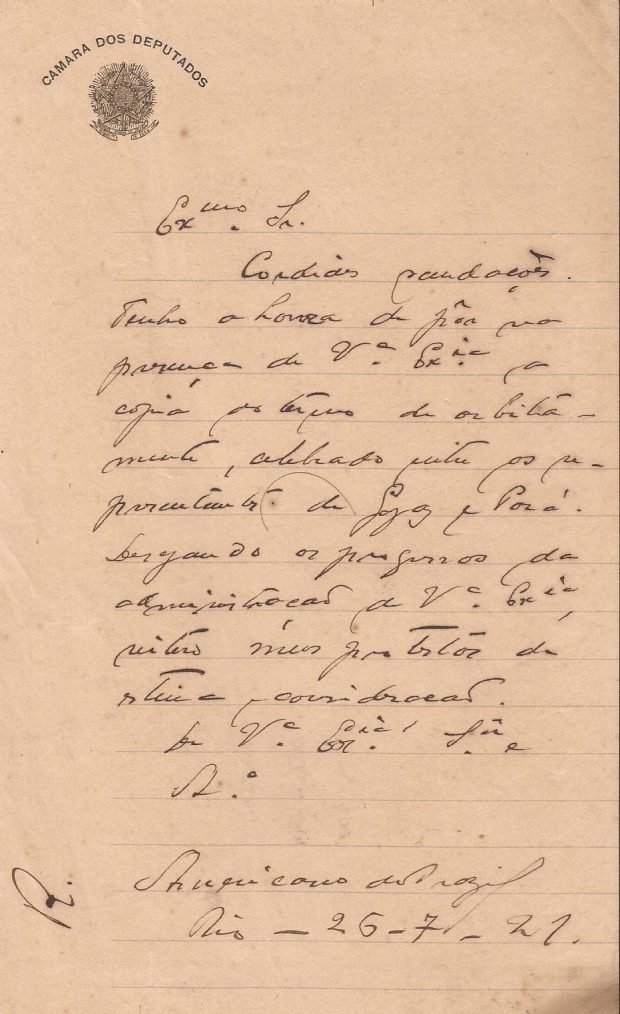 CAMARA DOS DEPUTADOS
Exmo. Sr.
Cordiaes saudações.
Tenho a honra de pôr na
presença de Vª. Exia. a
copia do têrmo de arbitra-
mento, celebrado entre os re-
presentantes de Goyaz e Pará.
Desejando os progressos da
administracaõ de Vª. Exia,
reitero meus protestos de
estima e consideracaõ.
De Vª. Exia.
Americano do Brazil
Rio - 25-7-21.
R.